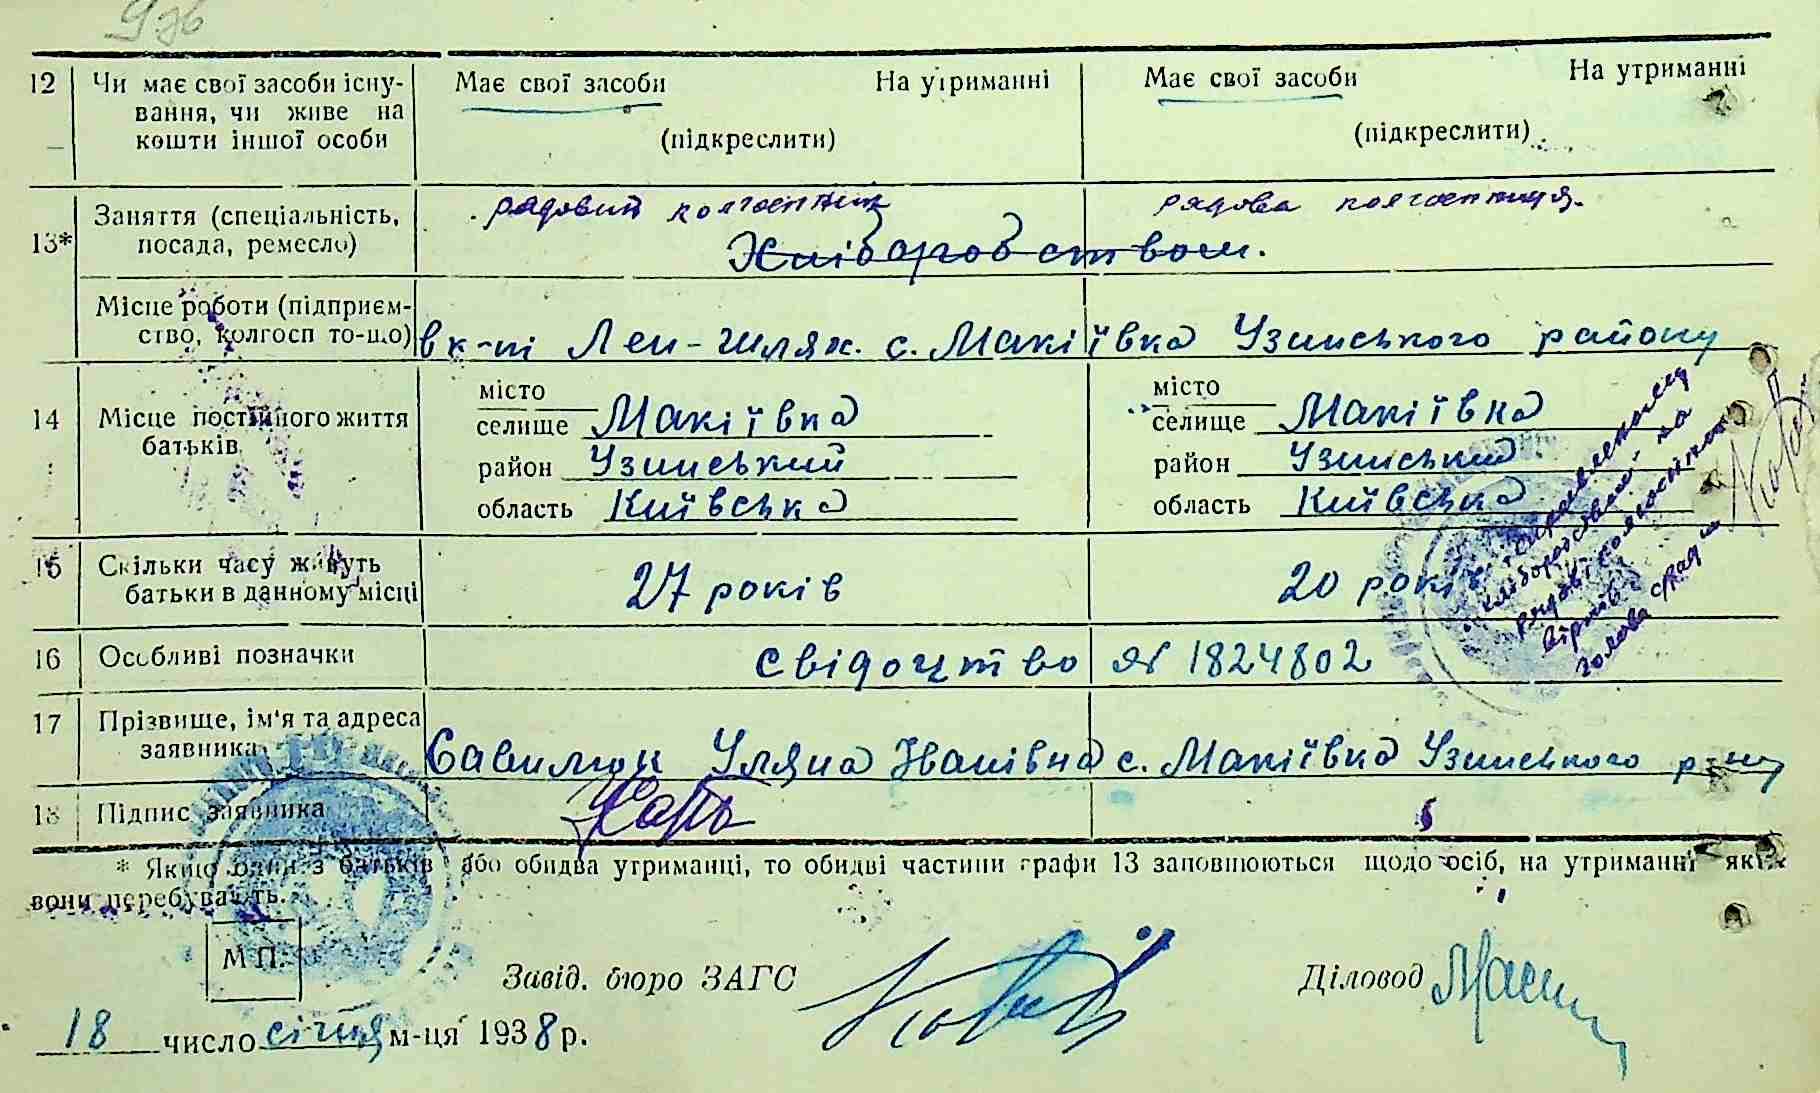 12 Чи має свої засоби існу- Має свої засоби На утриманні Має свої засоби На утриманні
вання, чи живе на
кошти іншої особи (підкреслити) (підкреслити)
13* Заняття (спеціальність, рядовий колгоспник рядова колгоспниця.
посада, ремесло) Хліборобством.
Місце роботи (підприєм-
ство, колгосп то-що) в к-пі Лен-шлях. с. Макіївка Узинського району
14 Місце постійного життя місто місто
батьків селище Макіївка селище Макіївка
район Узинський район Узинський
область Київська область Київська
15 Скільки часу живуть
батьки в данному місці 27 років 20 років
16 Особливі позначки свідоцтво № 1824802
17 Прізвище, ім'я та адреса
заявника Уляна Іванівна с. Макіївка Узинського р-ну
18 Підпис заявника
* Якщо один з батьків або обидва утриманці, то обидві частини графи 13 заповнюються щодо осіб, на утриманні яких
вони перебувають.
М.П. Завід. бюро ЗАГС Діловод
18 число січня м-ця 1938 р.